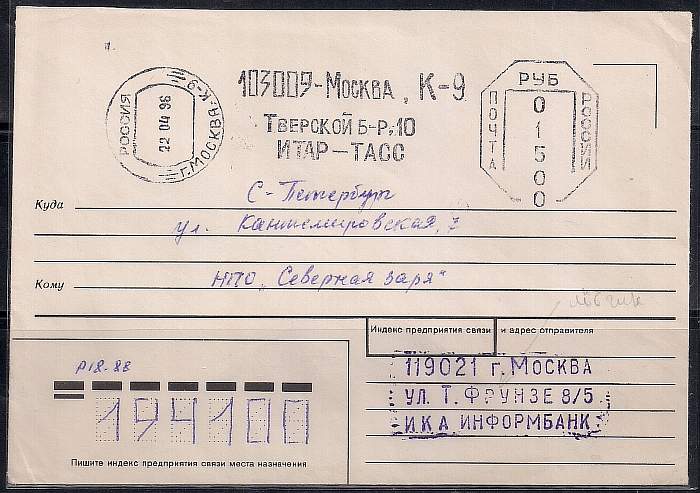 103009-МОСКВА, К-9
ТВЕРСКОЙ Б-Р, 10
ИТАР-ТАСС
РОССИЯ
22 04 96
Г. МОСКВА, К-9
РУБ
ПОЧТА
РОССИИ
01500
Куда С-Петербург
ул. Кантемировская, 7
Кому НПО „Северная заря"
Индекс предприятия связи и адрес отправителя
119021 г. МОСКВА
УЛ. Т. ФРУНЗЕ 8/5
ИКА ИНФОРМБАНК
Р18-88
194100
Пишите индекс предприятия связи места назначения